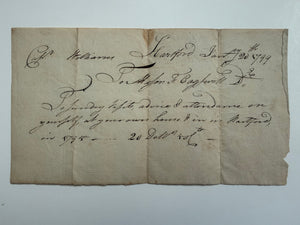 Capt Williams Hartford Jany 20th 1799
To Mason F Cogswell Dr
To sundry visits, advice & attendance on
yourself, at your own house & in Hartford,
in 1798 — — 20 Dolls